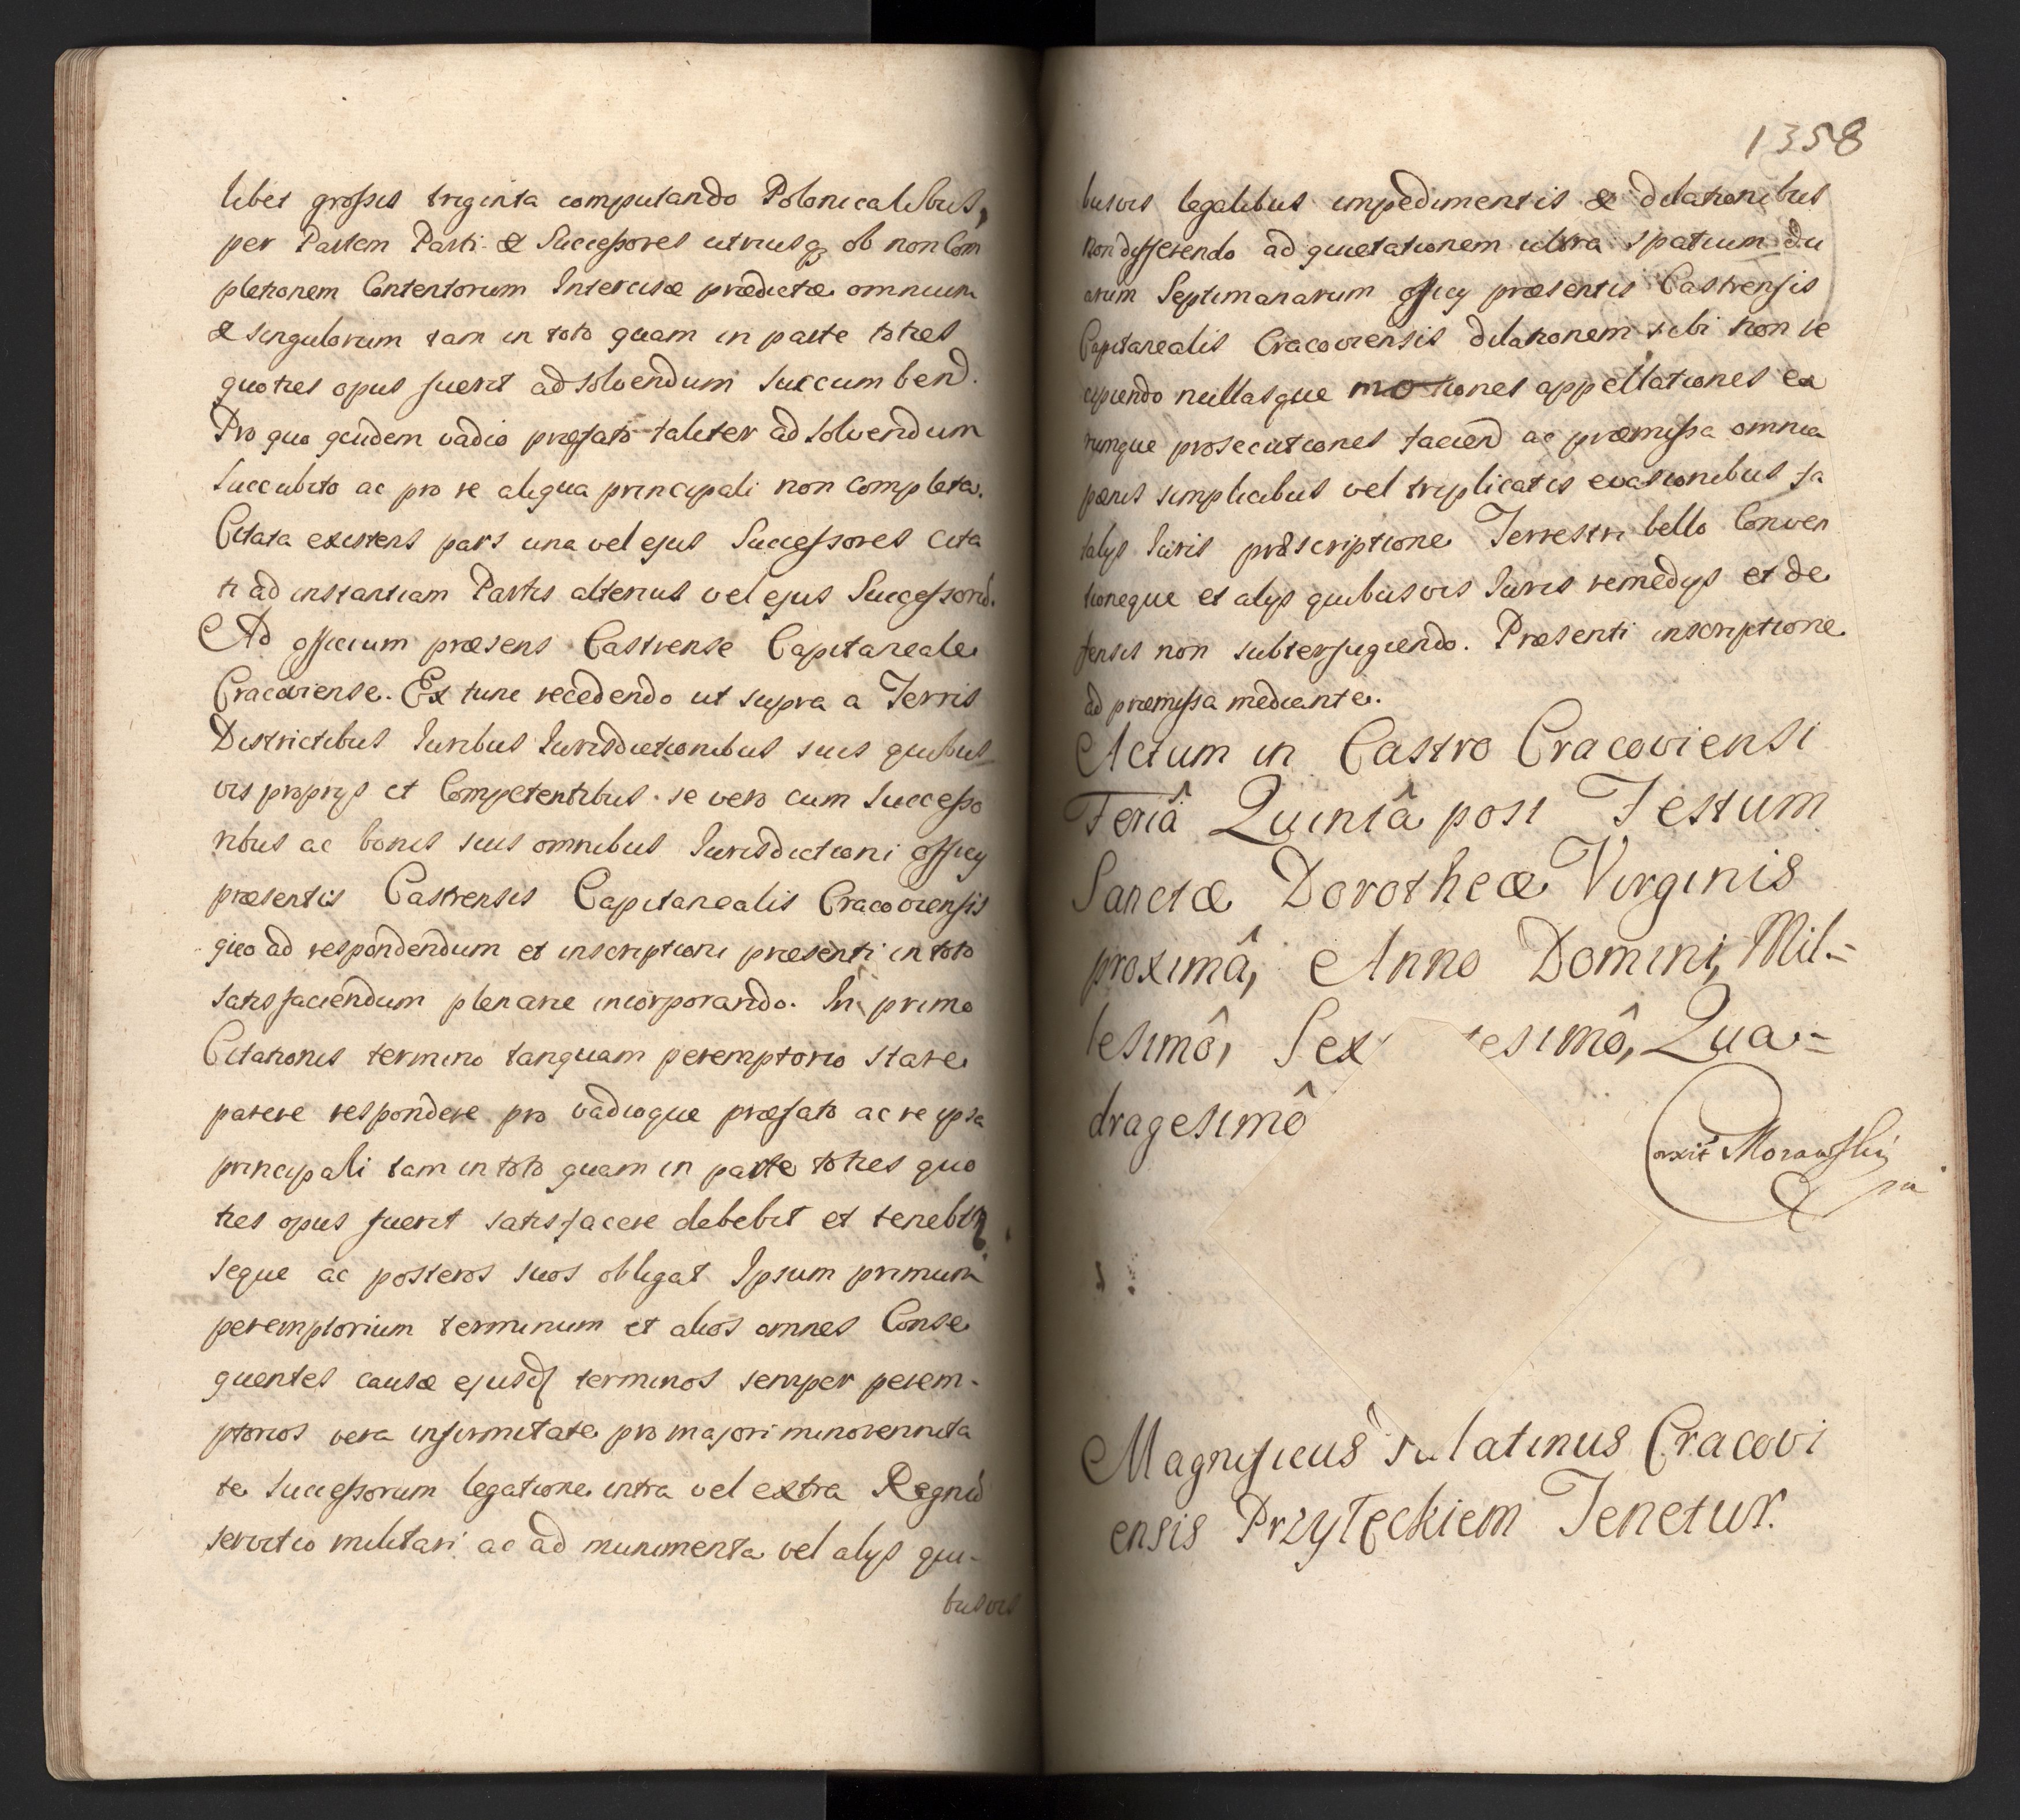 libet grossis triginta computando Polonicalibus,
per Partem Parti & Successores utriusq ob non Com
pletionem Contentorum Intercisæ prædictæ omnium
& singulorum tam in toto quam in parte toties
quoties opus fuerit adsolvendum succumbend.
Pro quo quidem vadio præfato taliter ad solvendum
succubito ac pro re aliqua principali non completa.
Citata existens pars una vel ejus Successores cita
ti ad instantiam Partis alterius vel ejus Successorū.
Ad officium præsens Castrense Capitaneale
Cracoviense. Ex tunc recedendo ut supra a Terris
Districtibus Iuribus Iurisdictionibus suis quibus
vis proprys et Competentibus. se vero cum successo
ribus ac bonis suis omnibus Iurisdictioni officy
præsentis Castrensis Capitanealis Cracoviensis
quo ad respondendum et inscriptioni præsenti in toto
satisfaciendum plenarie incorporando. In primo
Citationis termino tanquam peremptorio stare
parere respondere pro vadioque præfato ac re ipsa
principali tam in toto quam in parte toties quo
ties opus fuerit satisfacere debebit et tenebit
seque ac posteros suos obligat Ipsum primum
peremptorium terminum et alios omnes Conse
quentes causæ ejusd terminos semper perem-
ptorios vera infirmitate pro majori minorennita
te successorum legatione intra vel extra Regnū
servitio militari ac ad munimenta vel alys qui-
busvis
1358
busvis legalibus impedimentis & dilationibus
non differendo ad quietationem ultra spatium du
arum Septimanarum officy præsentis Castrensis
Capitanealis Cracoviensis dilationem sibi non re
cipiendo nullasque motiones appellationes ea
rumque prosecutiones faciend ac præmissa omnia
pænis simplicibus vel triplicatis evasionibus fa
talys Iuris præscriptione Terrestri bello Conven
tioneque et alys quibusvis Iuris remedys et de
fensis non subterfugiendo. Præsenti inscriptione
ad præmissa mediante.
Actum in Castro Cracoviensi
Feriâ Quintâ post Festum
Sanctæ Dorotheæ Virginis
proximâ, Anno Domini, Mil-
lesimô, Sex tesimô, Qua-
dragesimô
Morawski
Magnificus Palatinus Cracovi
ensis Przyłęckiem Tenetur.